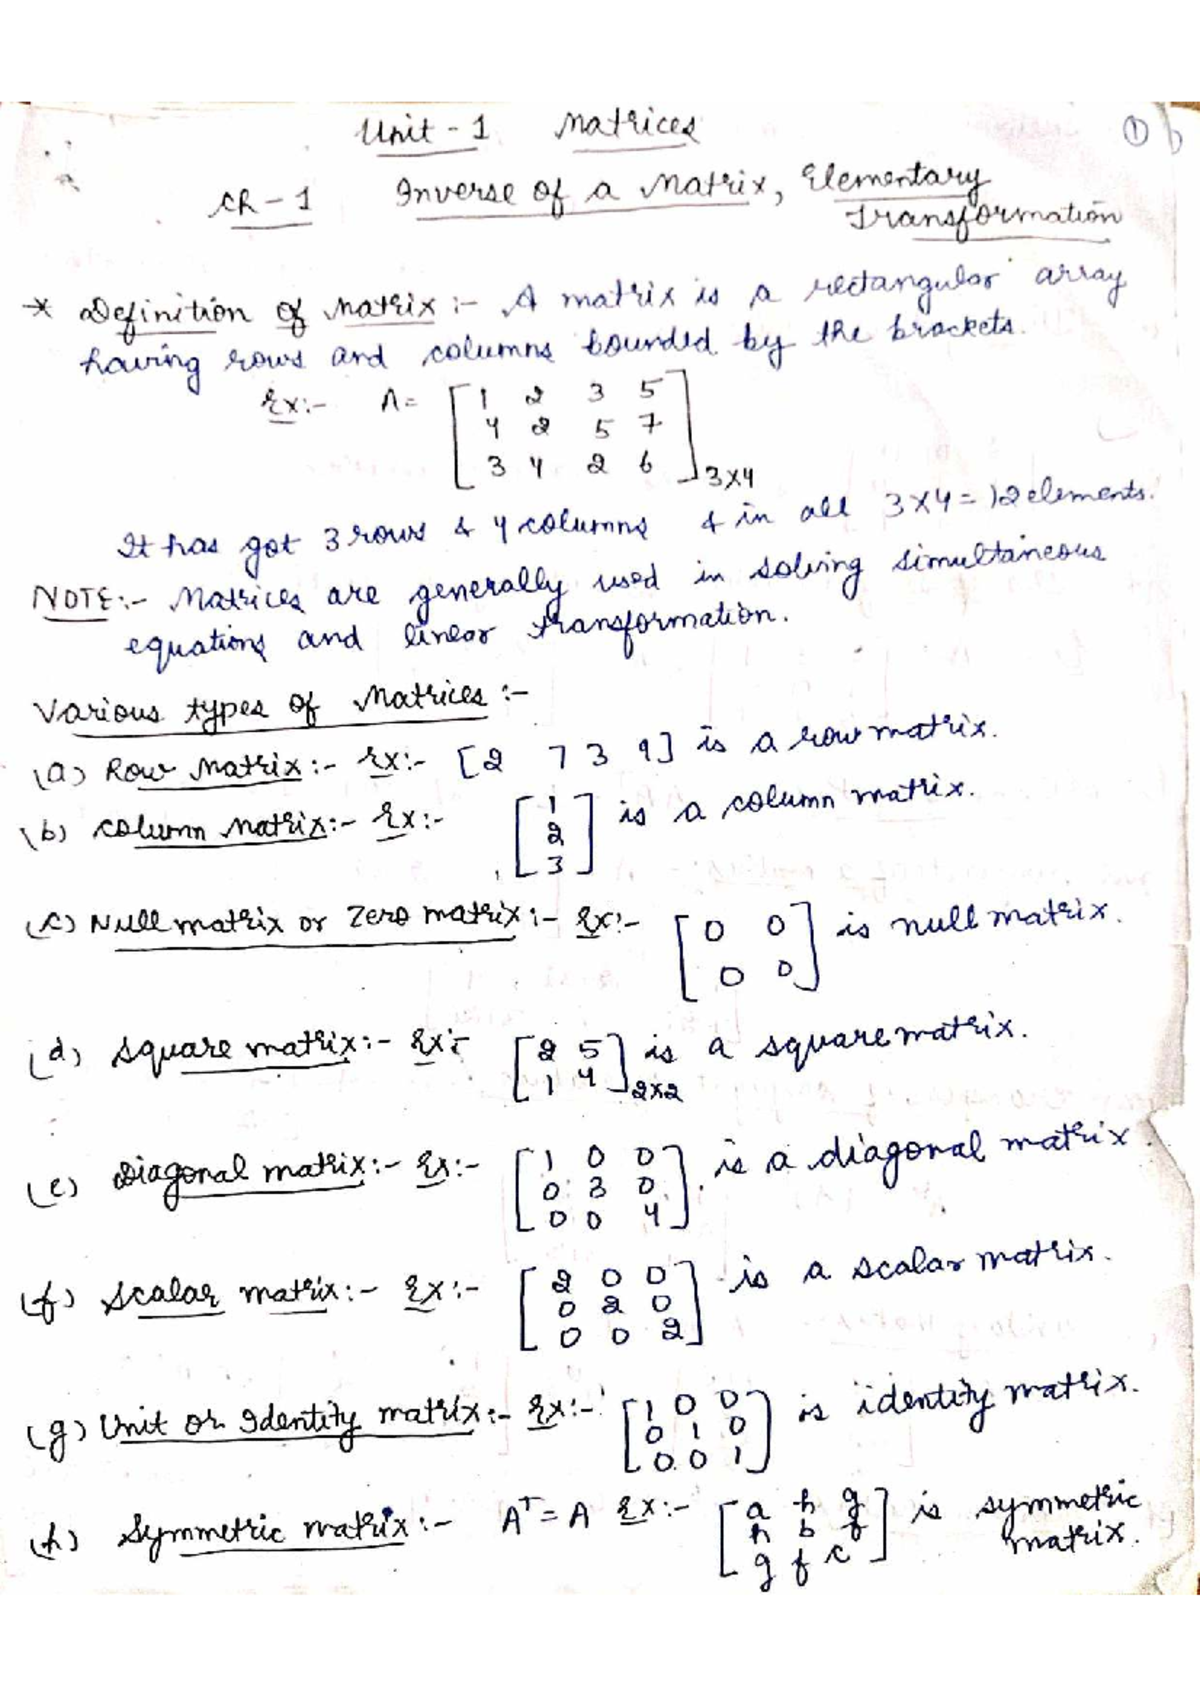 Unit - 1 Matrices
1
CH - 1 Inverse of a Matrix, Elementary
Transformation
* Definition of Matrix :- A matrix is a rectangular array
having rows and columns bounded by the brackets.
Ex:- A = [1 2 3 5
4 2 5 7
3 4 2 6] 3x4
It has got 3 rows & 4 columns & in all 3x4 = 12 elements.
NOTE:- Matrices are generally used in solving simultaneous
equations and linear transformation.
Various types of Matrices :-
(a) Row Matrix :- Ex:- [2 7 3 9] is a row matrix.
(b) Column Matrix:- Ex:- [1
2
3] is a column matrix.
(c) Null matrix or Zero matrix :- Ex:- [0 0
0 0] is null matrix.
(d) Square matrix:- Ex:- [2 5
1 4] 2x2 is a square matrix.
(e) Diagonal matrix:- Ex:- [1 0 0
0 3 0
0 0 4] is a diagonal matrix.
(f) Scalar matrix:- Ex:- [2 0 0
0 2 0
0 0 2] is a scalar matrix.
(g) Unit or Identity matrix:- Ex:- [1 0 0
0 1 0
0 0 1] is identity matrix.
(h) Symmetric matrix :- Aᵀ = A Ex:- [a h g
h b f
g f c] is symmetric
matrix.